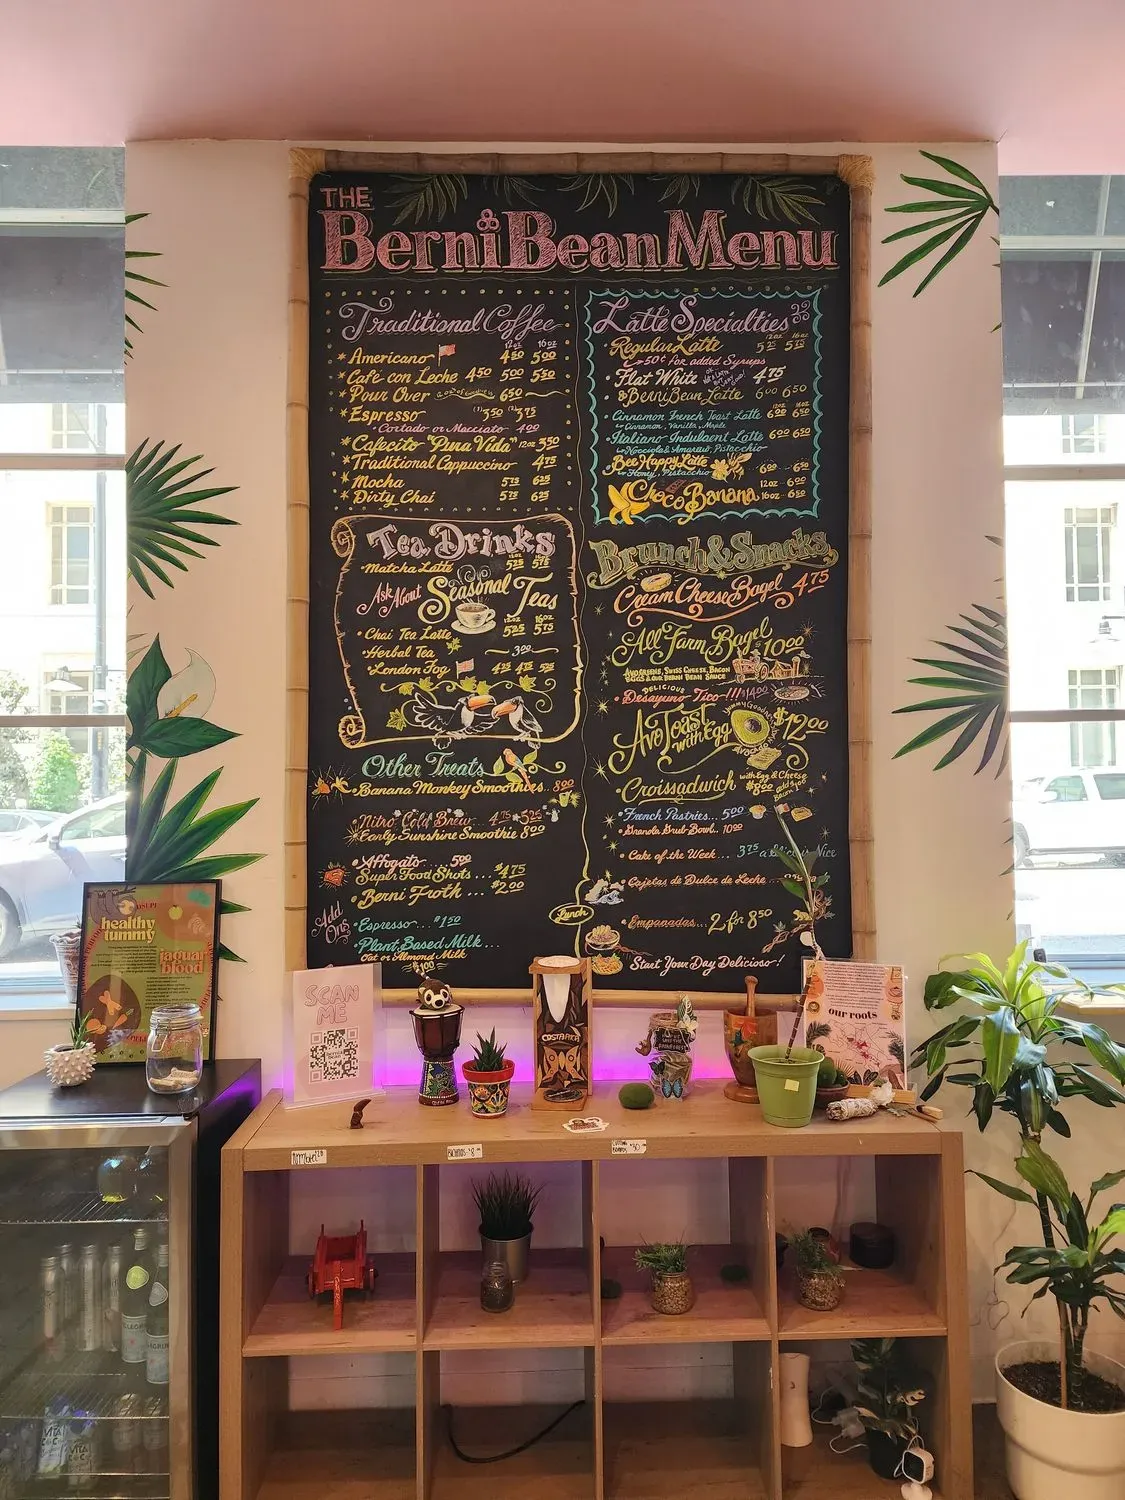 THE
Berni Bean Menu
Traditional Coffee
12oz 16oz
* Americano 4.50 5.00
* Café con Leche 4.50 5.00 5.50
* Pour Over 6.50
* Espresso (1) 3.50 (2) 3.75
• Cortado or Macciato 4.00
* Cafecito "Pura Vida" 12oz 3.50
* Traditional Cappuccino 4.75
* Mocha 5.75 6.25
* Dirty Chai 5.75 6.25
Tea Drinks
• Matcha Latte 5.25 5.75
Ask About Seasonal Teas
12oz 16oz
• Chai Tea Latte 5.25 5.75
• Herbal Tea 3.00
• London Fog
Other Treats
• Banana Monkey Smoothies.. 8.00
• Nitro Cold Brew
Early Sunshine Smoothie 8.00
• Affogato 5.00
Super Food Shots... $4.75
Berni Froth ... $2.00
Add Ons
• Espresso ... $1.50
• Plant Based Milk...
Oat or Almond Milk
$1.00
Latte Specialties
12oz 16oz
• Regular Latte 5.25
50¢ for added Syrups
• Flat White 4.75
BerniBean Latte 6.00 6.50
12oz 16oz
• Cinnamon French Toast Latte 6.00 6.50
Cinnamon, Vanilla, Maple
• Italiano Indulgent Latte 6.00 6.50
Nocciola & Amaretto, Pistacchio
Bee Happy Latte
Honey, Pistacchio 6.00 6.50
Choco Banana 12oz - 6.00
16oz - 6.50
Brunch & Snacks
Cream Cheese Bagel 4.75
All Farm Bagel $10.00
AVO GREENS, SWISS CHEESE, BACON
EGGS & OUR BERNI BEAN SAUCE
DELICIOUS
Desayuno Tico!!! $14.00
Avo Toast with Egg $12.00
Croissadwich with Egg & Cheese
$8.00
• French Pastries.. 5.00
• Granola Grub Bowl.. 10.00
• Cake of the Week... 3.75 a slice is Nice
• Cajetas de Dulce de Leche
Lunch
• Empanadas... 2 for 8.50
Start Your Day Delicioso!
healthy
tummy
jaguar
blood
SCAN
ME
COSTA RICA
our roots